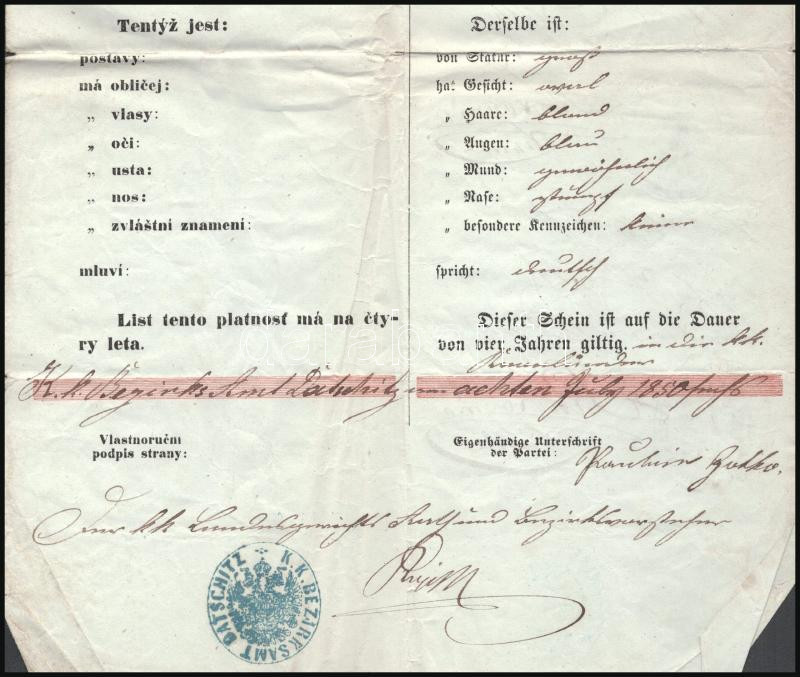 Tentýž jest:
postavy:
má obličej:
„ vlasy:
„ oči:
„ usta:
„ nos:
„ zvláštní znamení:
mluví:
List tento platnost má na čty-
ry leta.
Derselbe ist:
von Statur: groß
hat Gesicht: oval
„ Haare: blond
„ Augen: blau
„ Mund: gewöhnlich
„ Nase: stumpf
„ besondere Kennzeichen: keine
spricht: deutsch
Dieser Schein ist auf die Dauer
von vier Jahren giltig. in die kk.
Kronländer
K. k. Bezirks Amt Datschitz am achten July 1850 sechs
Vlastnoruční
podpis strany:
Eigenhändige Unterschrift
der Partei:
Der kk Landesgerichts Rath und Bezirksvorsteher
K.K. BEZIRKSAMT DATSCHITZ